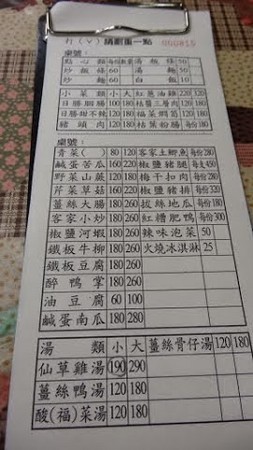 打(V)請劃重一點
000815
桌號:
點心類 每份數 湯粄條 50
炒粄條 60 湯麵 50
炒麵 60 白飯
小菜類 小 大 紅蔥油雞 220 320
日勝腸 100 180 桔醬三層肉 120 180
豬頭肉 120 180 桔葉粉腸 120 180
桌號:
青菜( ) 80 120 客家土鯽魚 每份280
鹹蛋苦瓜 160 220 椒鹽豬腿 每支450
野菜山蕨 120 180 梅干扣肉 每份180
芹菜草菇 160 220 椒鹽豬排 每份320
薑絲大腸 180 260 拔絲地瓜 每份180
客家小炒 180 260 紅糟肥鴨 每份300
椒鹽河蝦 180 260 辣味泡菜 50
鐵板牛柳 180 260 火燒冰淇淋 25
鐵板豆腐 180 260
醉鴨掌 180 260
油豆腐 60 100
鹹蛋南瓜 180 180
湯類 小 大 薑絲骨仔湯 120 180
仙草雞湯 190 290
薑絲鴨湯 120 180
酸(福)菜湯 120 180